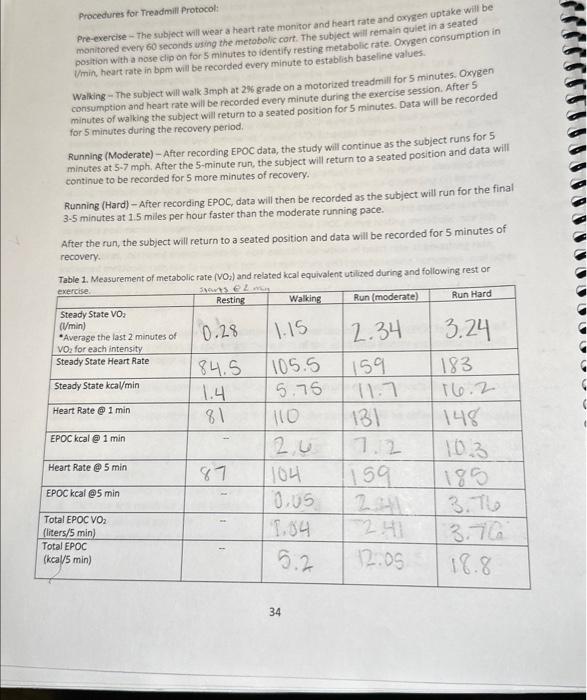 Procedures for Treadmill Protocol:
Pre-exercise – The subject will wear a heart rate monitor and heart rate and oxygen uptake will be
monitored every 60 seconds using the metabolic cart. The subject will remain quiet in a seated
position with a nose clip on for 5 minutes to identify resting metabolic rate. Oxygen consumption in
l/min, heart rate in bpm will be recorded every minute to establish baseline values.
Walking – The subject will walk 3mph at 2% grade on a motorized treadmill for 5 minutes. Oxygen
consumption and heart rate will be recorded every minute during the exercise session. After 5
minutes of walking the subject will return to a seated position for 5 minutes. Data will be recorded
for 5 minutes during the recovery period.
Running (Moderate) – After recording EPOC data, the study will continue as the subject runs for 5
minutes at 5-7 mph. After the 5-minute run, the subject will return to a seated position and data will
continue to be recorded for 5 more minutes of recovery.
Running (Hard) – After recording EPOC, data will then be recorded as the subject will run for the final
3-5 minutes at 1.5 miles per hour faster than the moderate running pace.
After the run, the subject will return to a seated position and data will be recorded for 5 minutes of
recovery.
Table 1. Measurement of metabolic rate (VO₂) and related kcal equivalent utilized during and following rest or
exercise. starts @ 2 min
Resting Walking Run (moderate) Run Hard
Steady State VO₂
(l/min)
*Average the last 2 minutes of
VO₂ for each intensity 0.28 1.15 2.34 3.24
Steady State Heart Rate 84.5 105.5 159 183
Steady State kcal/min 1.4 5.75 11.7 16.2
Heart Rate @ 1 min 81 110 131 148
EPOC kcal @ 1 min – 2.6 7.2 10.3
Heart Rate @ 5 min 87 104 159 185
EPOC kcal @5 min – 0.05 2.41 3.76
Total EPOC VO₂
(liters/5 min) – 1.04 2.41 3.76
Total EPOC
(kcal/5 min) – 5.2 12.05 18.8
34